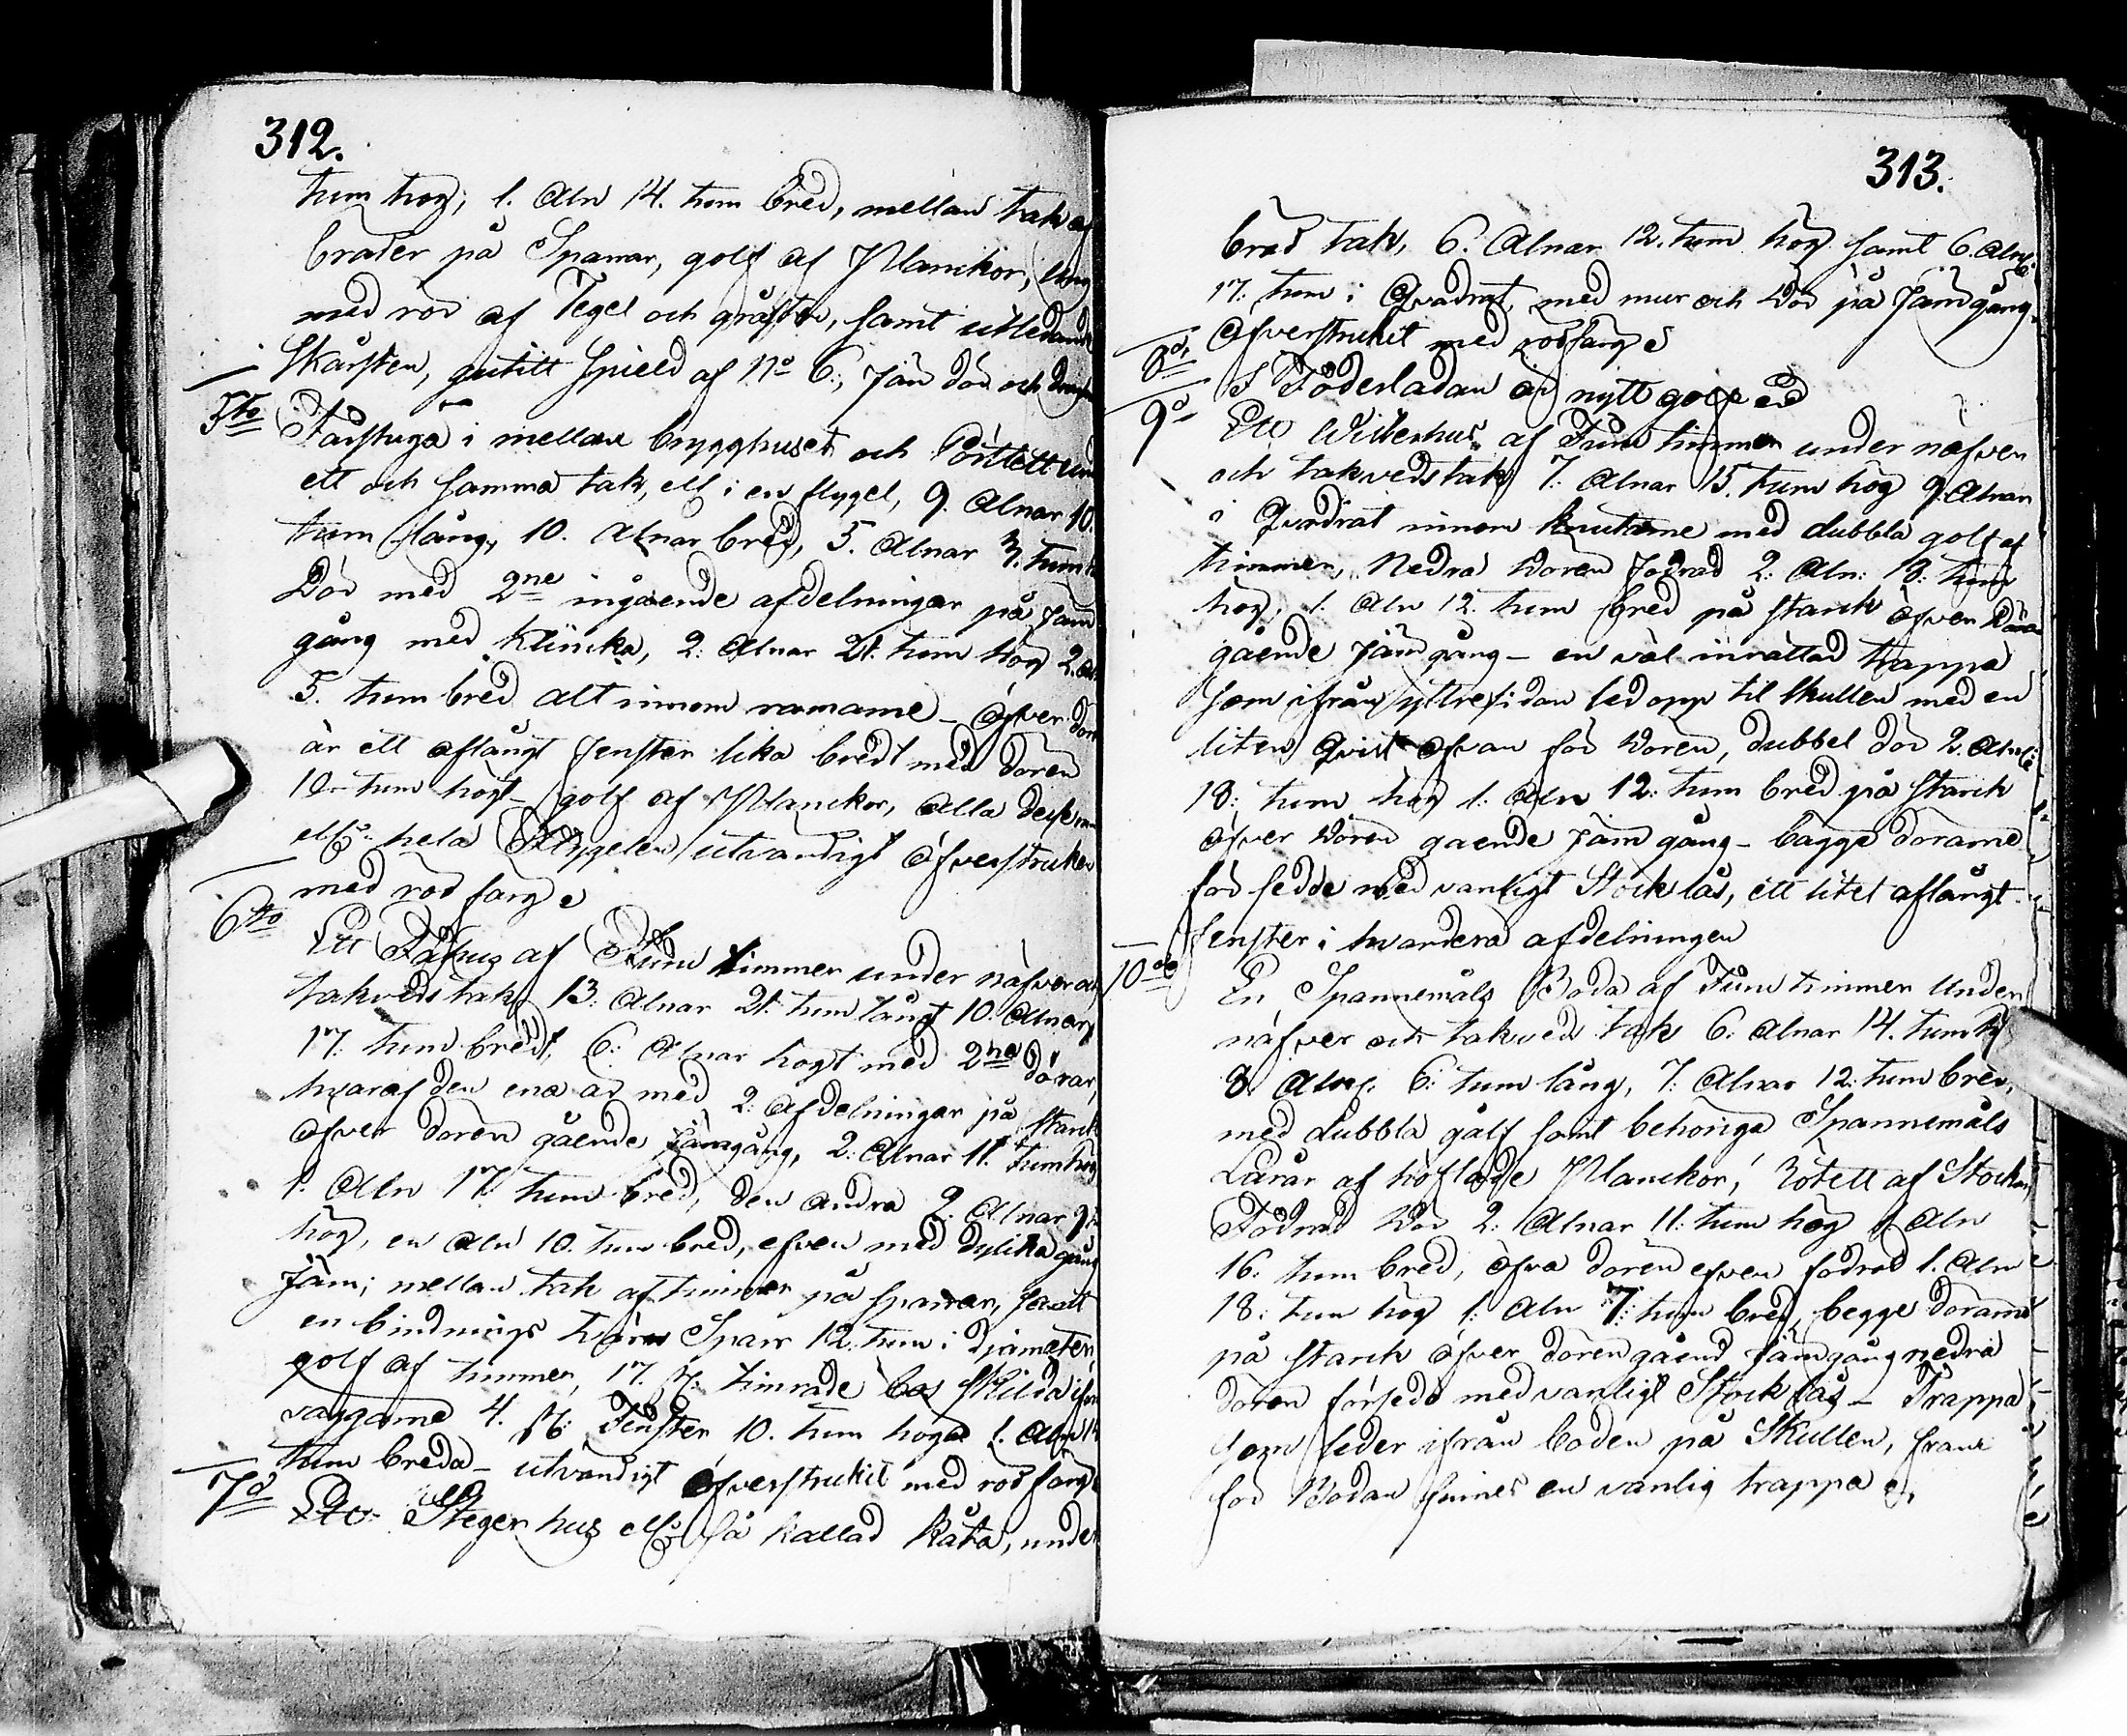 312.
tum hög, 1. Aln 14. tum bred, mellan tak af
bräder på Sparrar, golf af Planckor,
med rör af Tegel och gråsten, samt utledande
Skårsten, gutitt Spield af No 6:, Järn dör och
5to Farstuga i mellan brygghuset och Pörttett und
ett och samma tak, elf i en flygel, 9. Alnar 10.
tum lång, 10. Alnar bred, 5. Alnar 3. tum
Dör med 2ne ingående afdelningar på Järn
gång med Klincka, 2: Alnar 21. tum hög 2. Al
5. tum bred alt innom ramarne – öfver dör
är ett aflångt fenster lika bredt med dören
10– tum högt – golf af Planckor, Alla desse
elr hela Flygelen utvändigt öfverstruken
med röd färg
6to Ett Fähus af Furu timmer under näfver och
takveds tak, 13: Alnar 21. tum långt 10. Alnar
17: tum bredt, 6: Alnar högt med 2ne dörar,
hvaraf den ena är med 2: afdelningar på starck
öfver dören gående Järngång, 2: Alnar 11. tum hög
1. Aln 17: tum bred, den andra 2: Alnar 9
hög, en Aln 10. tum bred, efven med dylika gång
Järn; mellan tak af timmer på sparrar, samt
en bindnings tvärs Sparr 12. tum i djameter,
golf af timmer, 17. st: timrade bås skilda ifrån
väggarne 4. st: Fenster 10. tum höga 1. Aln 14
tum breda – utvändigt öfverstrukit med röd färg
7d Ett Steger hus elr så kallad Kåta, under
313.
bräd tak, 6. Alnar 12. tum hög samt 6. Alnr
17: tum i Qvadrat, med mur och dör på Järngång,
öfverstrukit med rödfärg
8d, I Föderladan är nytt golf
9d Ett Witterhus af Furu timmer under näfver
och takvedstak 7. Alnar 15. tum hög 9. Alnar
i Qvadrat innom knutarne med dubbla golf af
timmer, Nedra dören fodrad 2: Aln: 18: tum
hög, 1. Aln 12. tum bred på starck öfver dören
gående Järngång – en väl inrättad trappa
som ifrån yttre sidan led opp til skullen med en
liten Qvist ofvan för dören, dubbel dör 2. Alnr
18: tum hög 1: Aln 12: tum bred på starck
öfver dören gående Järn gång – bägge dörarne
för sedde med vanligt Stock lås, ett litet aflångt
fenster i hvardera afdelningen
10de En Spannemåls Boda af Furu timmer under
näfver och takveds tak 6: Alnar 14. tum hög
8. Alnr. 6: tum lång, 7: Alnar 12: tum bred,
med dubbla gålf samt behöriga Spannemåls
Lårar af höflade Planckor, Rötell af Stockar,
Fodrad dör 2: Alnar 11: tum hög 1 Aln
16: tum bred, öfra dören efven fodrad 1. Aln
18: tum hög 1: Aln 7: tum bred, begge dörarne
på starck öfver dören gåend Järngång nedra
dören försedd med vanligt Stock lås – Trappa
som leder ifrån boden på Skullen, fram
för Bodan finnes en vanlig trappa